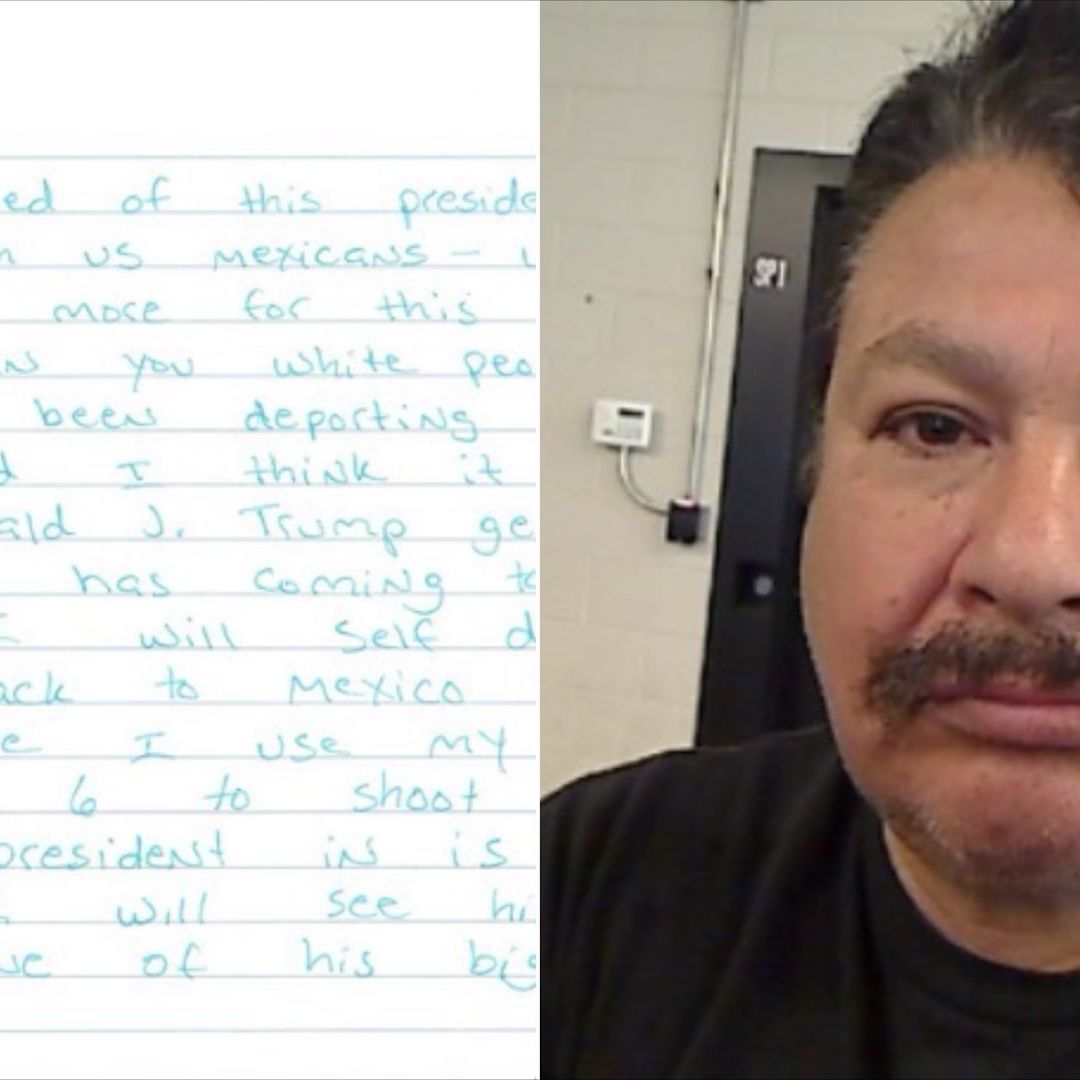 ed of this preside
n us mexicans –
more for this
ns you white peo
been deporting
d I think it
ald J. Trump ge
has coming to
will self d
ack to Mexico
e I use my
6 to shoot
president in is
will see hi
ve of his big
SP1